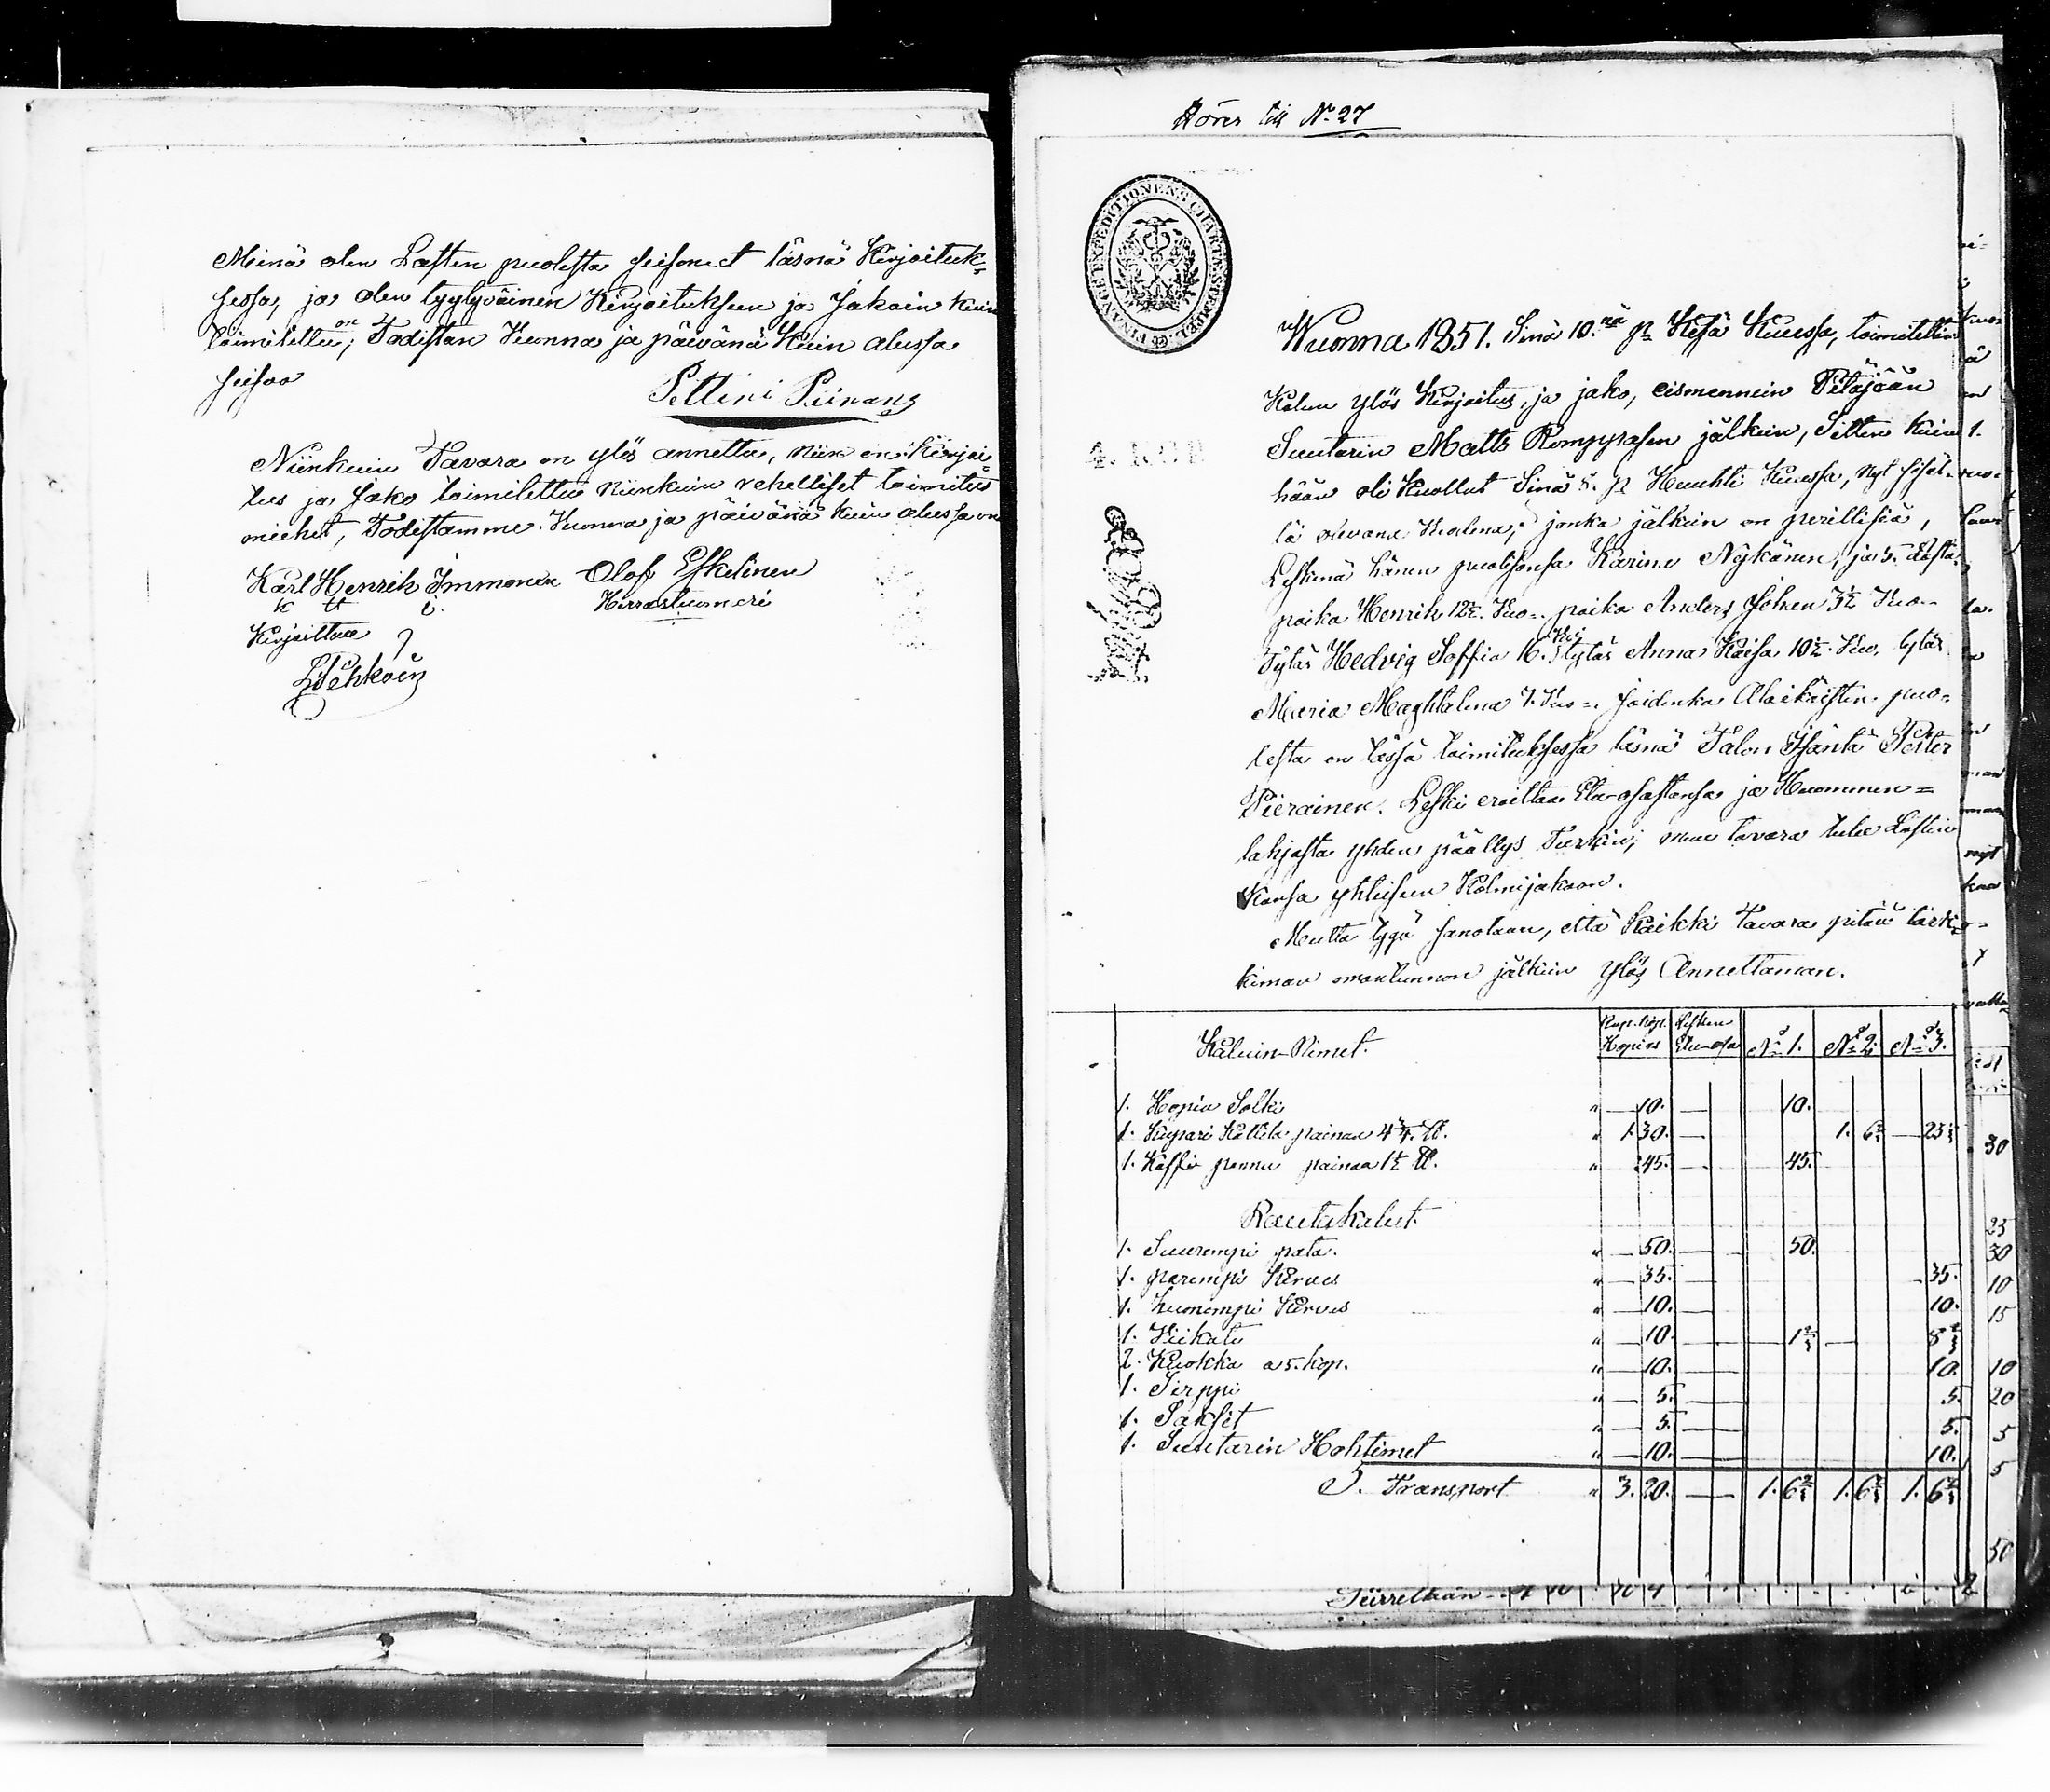 Minä olen Lasten puolesta seisonut läsnä Kirjoituk-
sessa, ja olen tyytyväinen Kirjoitukseen ja Jakoin kuin
toimitettu on; Todistan Vuonna ja päivänä Kuin alussa
seisoo
Petteri Piirainen
Niinkuin Tavara on ylös annettu, niin on Kirjoi-
tus ja Jako toimitettu niinkuin rehelliset toimitus
miehet, Todistamme. Vuonna ja päivänä kuin alussa on
Karl Henrik Immonen Olof Eskelinen
Herrastuomari
Kirjoittaa
Pehkoin
Hörer till No 27
FINANCE EXPEDITIONENS CHARTÆ STEMPEL
Wuonna 1851. Sinä 10.nä p. Kesä Kuussa, toimitettin
Kalun ylös Kirjoitus, ja jako, eismennein Pitäjään
Suutarin Matts Romppasen jälkein, Sitten kuin
hään oli Kuollut Sinä 8. p Huuhti Kuussa, nyt
olevana Kalena; jonka jälkein on perillisiä,
Leskinä hänen puolisonsa Karina Nykänen, ja 5. Lasta,
poika Henrik 12½. Vuo-. poika Anders Johan 3½ Vuo-
Tytär Hedvig Soffia 16. Vuo tytär Anna Kaisa 10½. Vuo. tytär
Maria Maghdalena 7. Vuo-. Joidenka Alaikäisten puo-
lesta on tässä toimituksessa läsnä Talon Isäntä Petter
Piirainen. Leski eroittaa Etu-osastansa ja Huomen=
lahjasta yhden päällys Turkin; muu tavara tulee Lasten
Kansa yhteiseen Kolmijakoon.
Mutta tygä sanotaan, että Kaikki Tavara pitää tark-
kiman omantunnon jälkiin ylös Annettaman.
Kaluin-Nimet. Rup. kop. Hopias Lesken Etu-osa No 1. No 2. No 3.
1. Hopia Solki " — 10. — 10.
1. Kupari Kattila painaa 4¾. ℔. " 1.30. — 1. 6⅔ — 23⅓
1. Kaffi pannu painaa 1½ ℔. " 45. — 45.
Rautakalut.
1. Suurempi pata. " — 50. — 50.
1. parempi Kirves " — 35. — 35.
1. huonompi Kirves " — 10. — 10.
1. Viikate " — 10. — 1⅔ — 8⅓
2. Kuokka a 5. kop. " — 10. — 10.
1. Sirppi " — 5. — 5.
1. Sakset " — 5. — 5.
1. Suutarin Hohtimet " — 10. — 10.
S. Transport " 3.20. — 1.6⅔ 1.6⅔ 1.6⅔
Siirretään
30
25
30
10
15
10
20
5
5
50